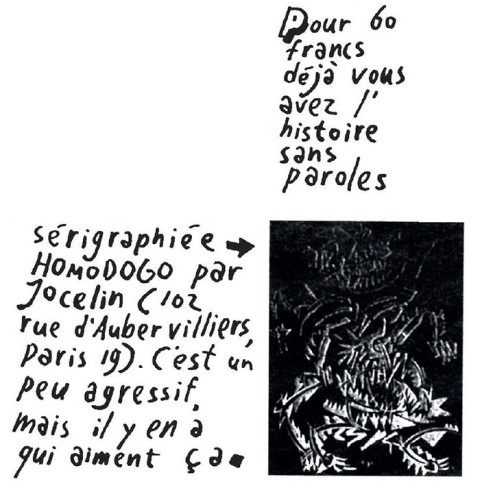 Pour 60
francs
déjà vous
avez l'
histoire
sans
paroles
sérigraphiée →
HOMODOGO par
Jocelin (102
rue d'Aubervilliers,
Paris 19). C'est un
peu agressif,
mais il y en a
qui aiment ça.